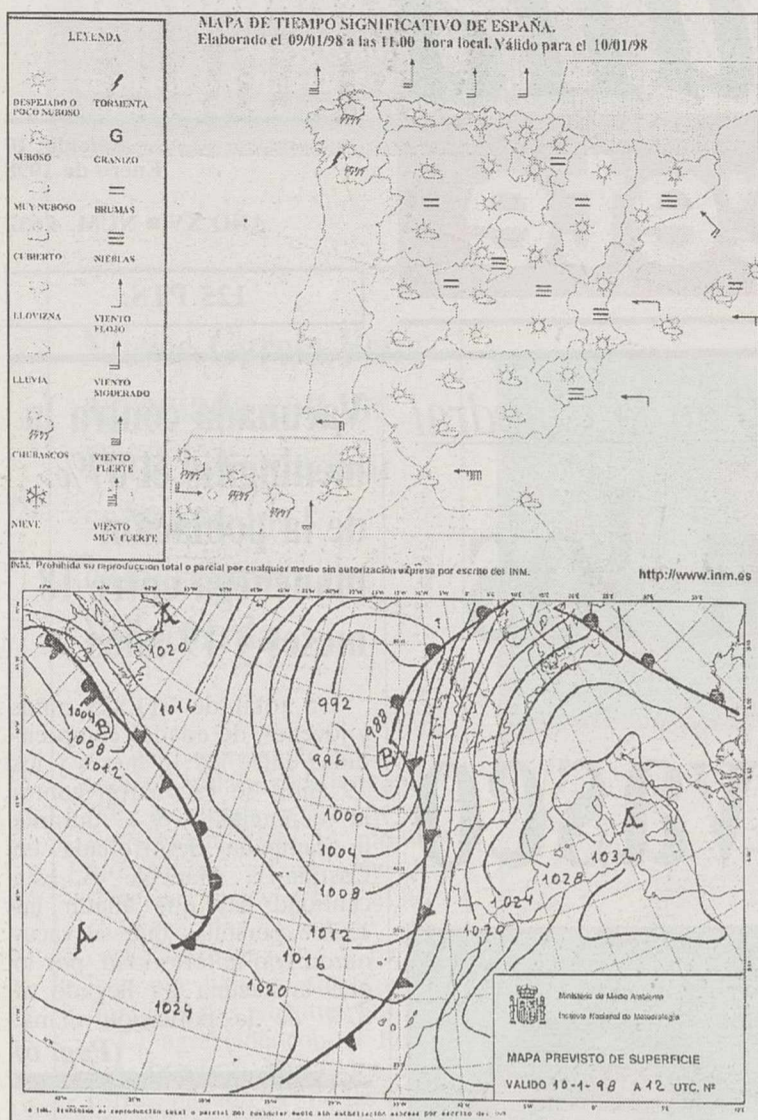 MAPA DE TIEMPO SIGNIFICATIVO DE ESPAÑA.
Elaborado el 09/01/98 a las 11.00 hora local. Válido para el 10/01/98
LEYENDA
DESPEJADO O
POCO NUBOSO
TORMENTA
G
NUBOSO
GRANIZO
MUY NUBOSO
BRUMAS
CUBIERTO
NIEBLAS
LLOVIZNA
VIENTO
FLOJO
LLUVIA
VIENTO
MODERADO
CHUBASCOS
VIENTO
FUERTE
NIEVE
VIENTO
MUY FUERTE
INM. Prohibida su reproducción total o parcial por cualquier medio sin autorización expresa por escrito del INM.
http://www.inm.es
A
1020
1016
1004
B
1008
1012
992
988
996
B
1000
1004
1008
1012
1016
1020
1024
A
A
1032
1028
1024
1020
Ministerio de Medio Ambiente
Instituto Nacional de Meteorología
MAPA PREVISTO DE SUPERFICIE
VALIDO 10-1-98 A 12 UTC. Nº